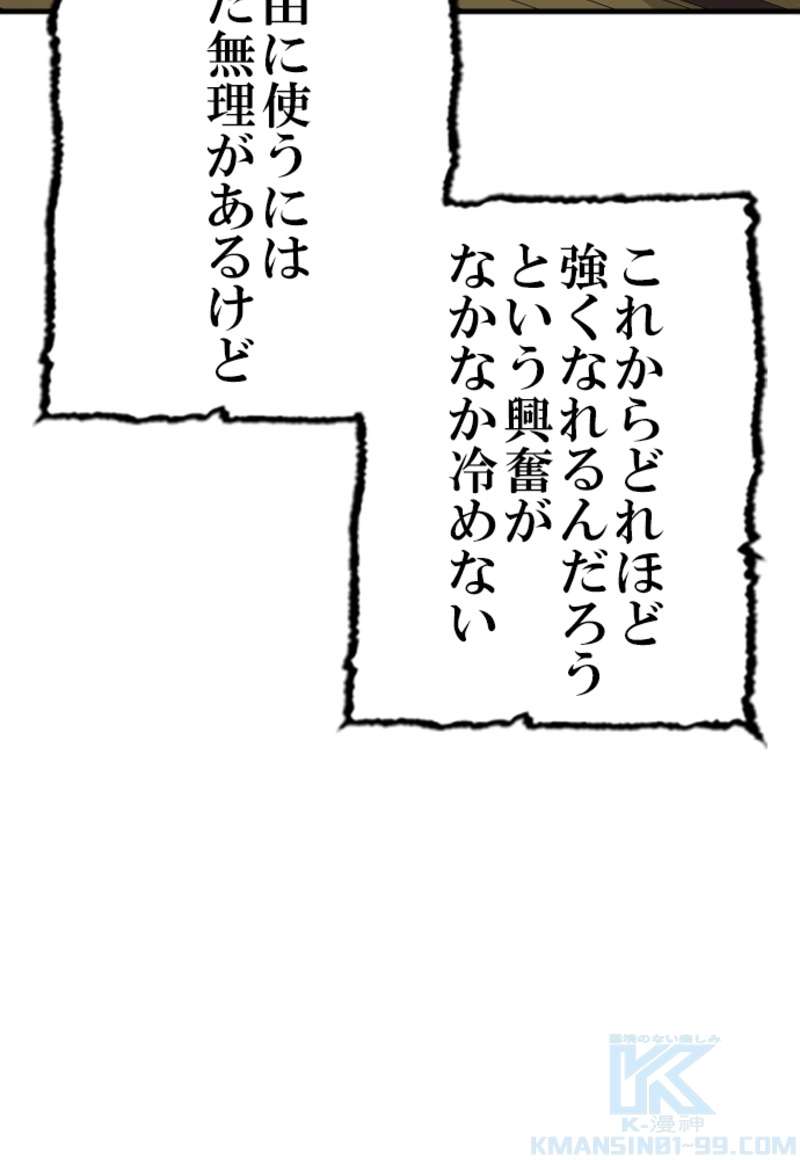 由に使うには
た無理があるけど
これからどれほど
強くなれるんだろう
という興奮が
なかなか冷めない
国境のない楽しみ
K-漫神
KMANSIN01-99.COM